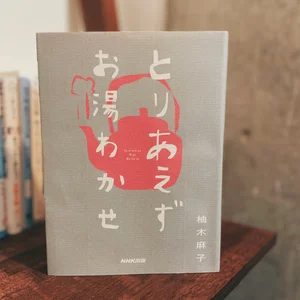 とりあえず
お湯わかせ
柚木麻子
NHK出版